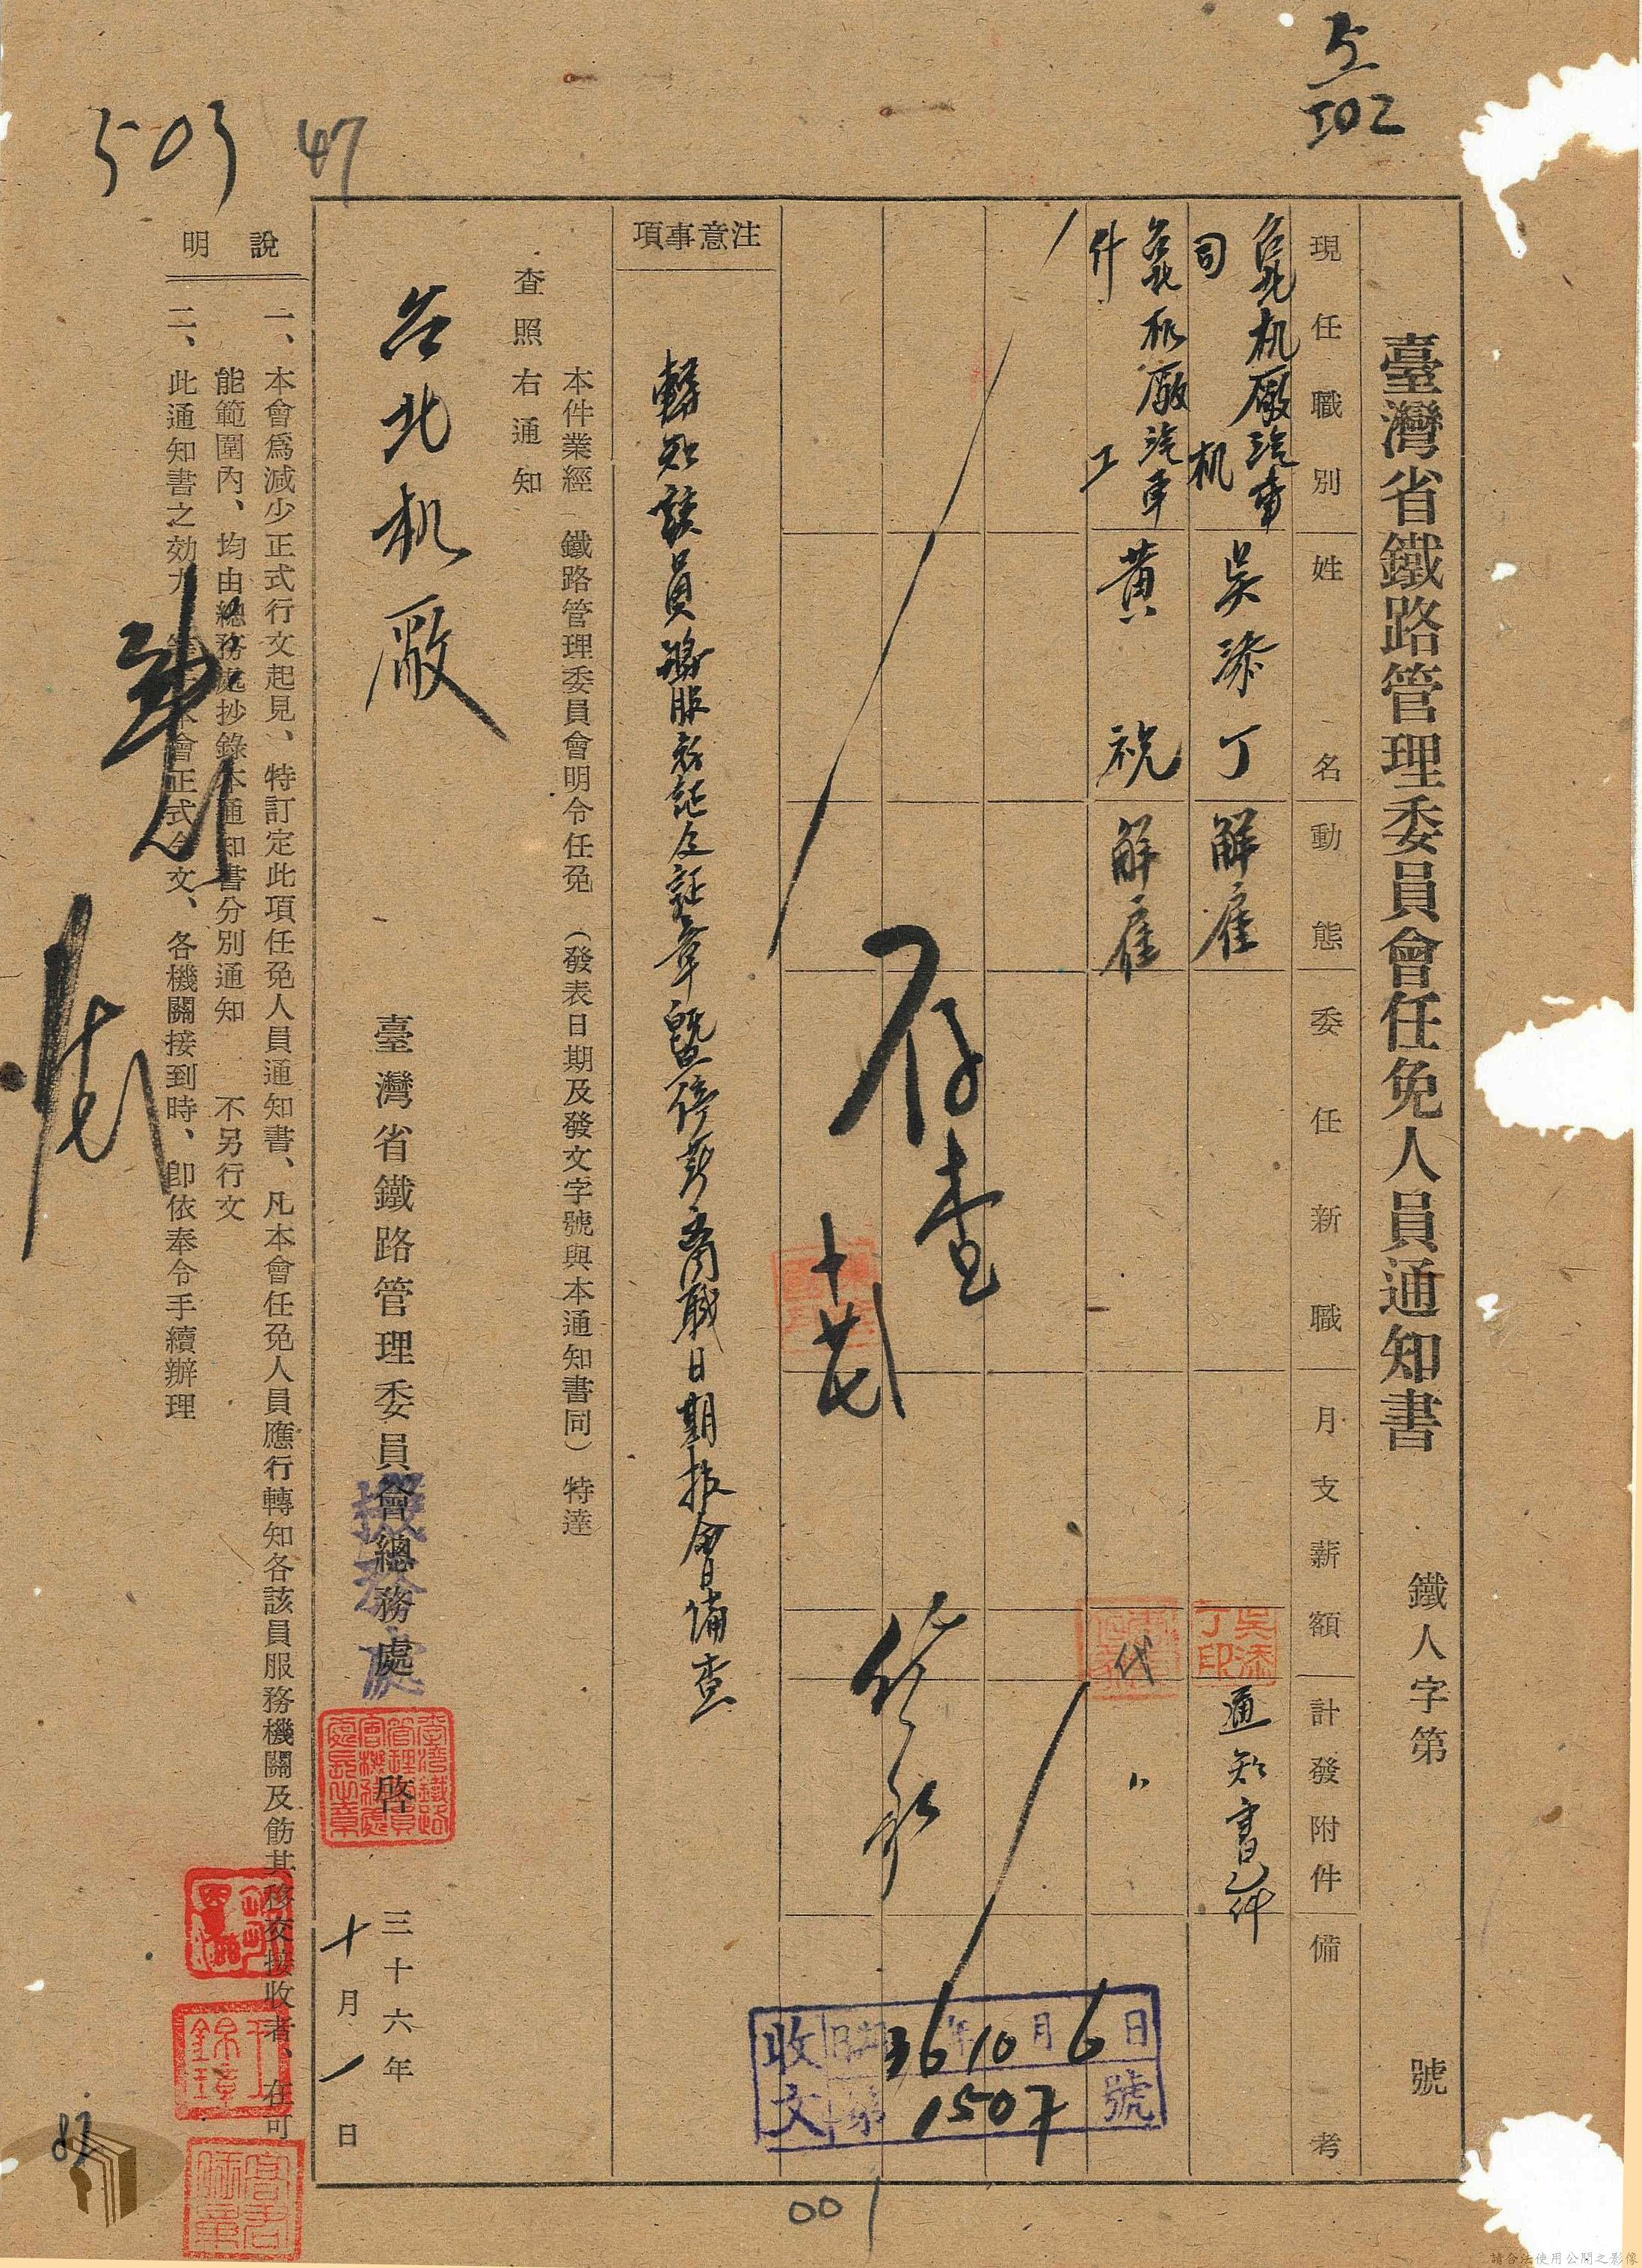 5/502
503
47
臺灣省鐵路管理委員會任免人員通知書
鐵人字第 號
現任職別
姓名
動態
委任新職
月支薪額
計發附件
備考
台北机廠汽車司机
吳添丁
解雇
吳添丁印
通知書乙件
台北机廠汽車
件工
黃祝
解雇
代
〃
存查
十
注意事項
轉知該員將服務証及証章暨停薪离職日期报會備查
本件業經 鐵路管理委員會明令任免 (發表日期及發文字號與本通知書同) 特達
查照右通知
台北机廠
臺灣省鐵路管理委員會總務處 啓
三十六年
十月一日
說明
一、本會爲減少正式行文起見、特訂定此項任免人員通知書、凡本會任免人員應行轉知各該員服務機關及飭其移交接收者、在可
能範圍內、均由總務處抄錄本通知書分別通知 不另行文
二、此通知書之効力 等 本會正式令文、各機關接到時、卽依奉令手續辦理
收文
36年10月6日
第1507號
001
83
請合法使用公開之影像